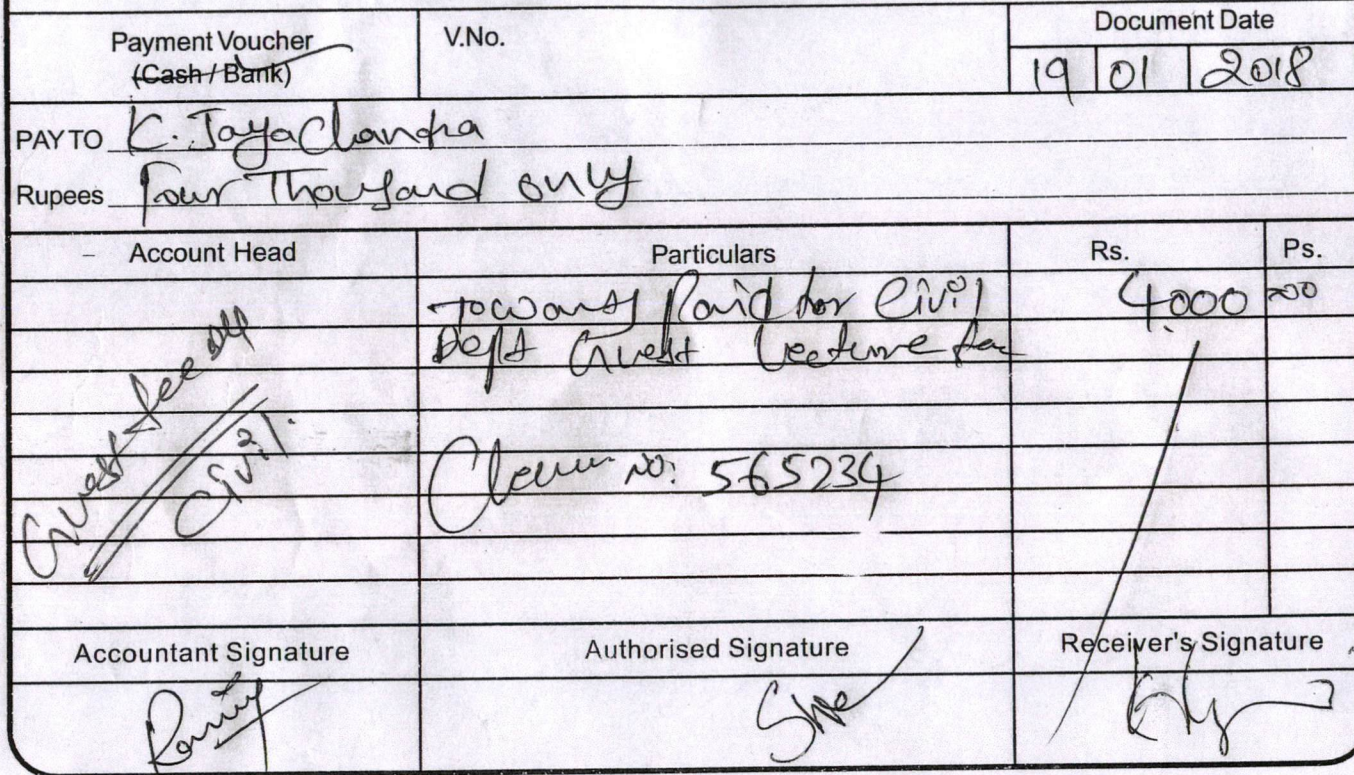 Payment Voucher
(Cash / Bank)
V.No.
Document Date
19 01 2018
PAY TO K. JayaChandra
Rupees Four Thousand only
Account Head
Particulars
Rs.
Ps.
Towards Paid for Civil
4000 00
Dept Guest Lecture fee
Guest fee
Civil
No: 565234
Accountant Signature
Authorised Signature
Receiver's Signature